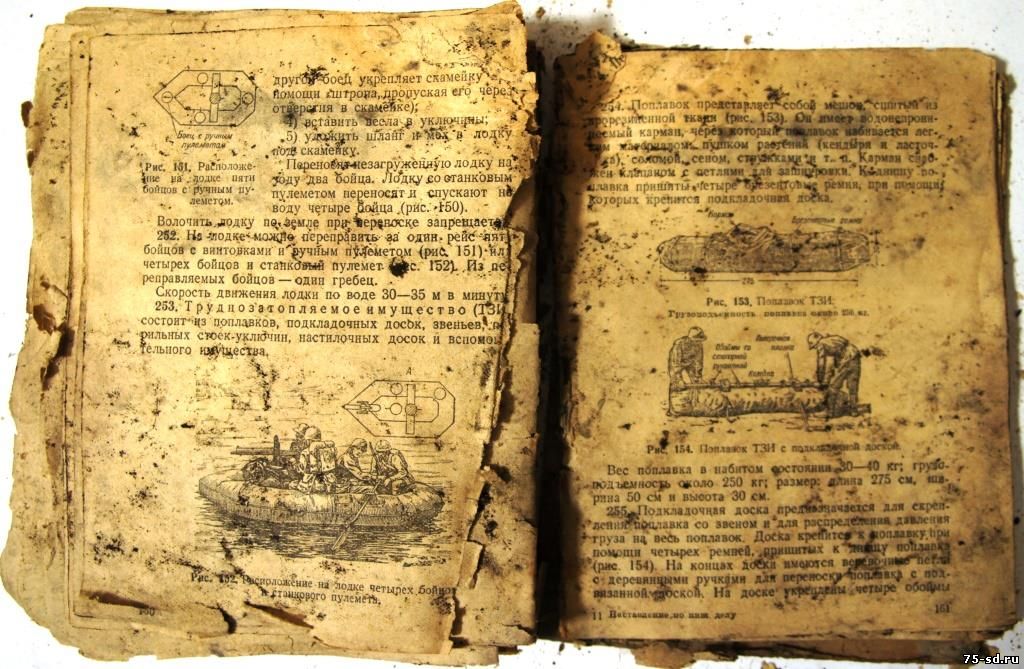 Боец с ручным
пулеметом
Рис. 151. Расположе-
ние на лодке пяти
бойцов с ручным пу-
леметом.
другой боец укрепляет скамейку
помощи штропа, пропуская его через
отверстия в скамейке);
4) вставить весла в уключины;
5) уложить шланг и мех в лодку
под скамейку.
Переносят незагруженную лодку на
воду два бойца. Лодку со станковым
пулеметом переносят и спускают на
воду четыре бойца (рис. 150).
Волочить лодку по земле при переноске запрещается.
252. На лодке можно переправить за один рейс пять
бойцов с винтовками и ручным пулеметом (рис. 151) или
четырех бойцов и станковый пулемет (рис. 152). Из пе-
реправляемых бойцов — один гребец.
Скорость движения лодки по воде 30—35 м в минуту
253. Труднозатопляемое имущество (ТЗИ
состоит из поплавков, подкладочных досок, звеньев,
рильных стоек-уключин, настилочных досок и вспомо
тельного имущества.
А
Рис. 152. Расположение на лодке четырех бойцов
и станкового пулемета.
160
254. Поплавок представляет собой мешок, сшитый из
прорезиненной ткани (рис. 153). Он имеет водонепрони-
цаемый карман, через который поплавок набивается лег-
ким материалом: пухом растений (кендыря и ласточ-
), соломой, сеном, стружками и т. п. Карман снаб-
жен клапаном с петлями для зашнуровки. К днищу по-
плавка пришиты четыре брезентовые ремня, при помощи
которых крепится подкладочная доска.
Карман
Брезентовые ремни
275
Рис. 153. Поплавок ТЗИ.
Грузоподъемность поплавка около 250 кг.
Обоймы со
Колодка
Рис. 154. Поплавок ТЗИ с подкладочной доской.
Вес поплавка в набитом состоянии 30—40 кг; грузо-
подъемность около 250 кг; размер: длина 275 см, ши-
рина 50 см и высота 30 см.
255. Подкладочная доска предназначается для скреп-
ления поплавка со звеном и для распределения давления
груза на весь поплавок. Доска крепится к поплавку при
помощи четырех ремней, пришитых к днищу поплавка
(рис. 154). На концах доски имеются веревочные петли
с деревянными ручками для переноски поплавка с под-
вязанной доской. На доске укреплены четыре обоймы
11 Наставление по инж. делу
161
75-sd.ru